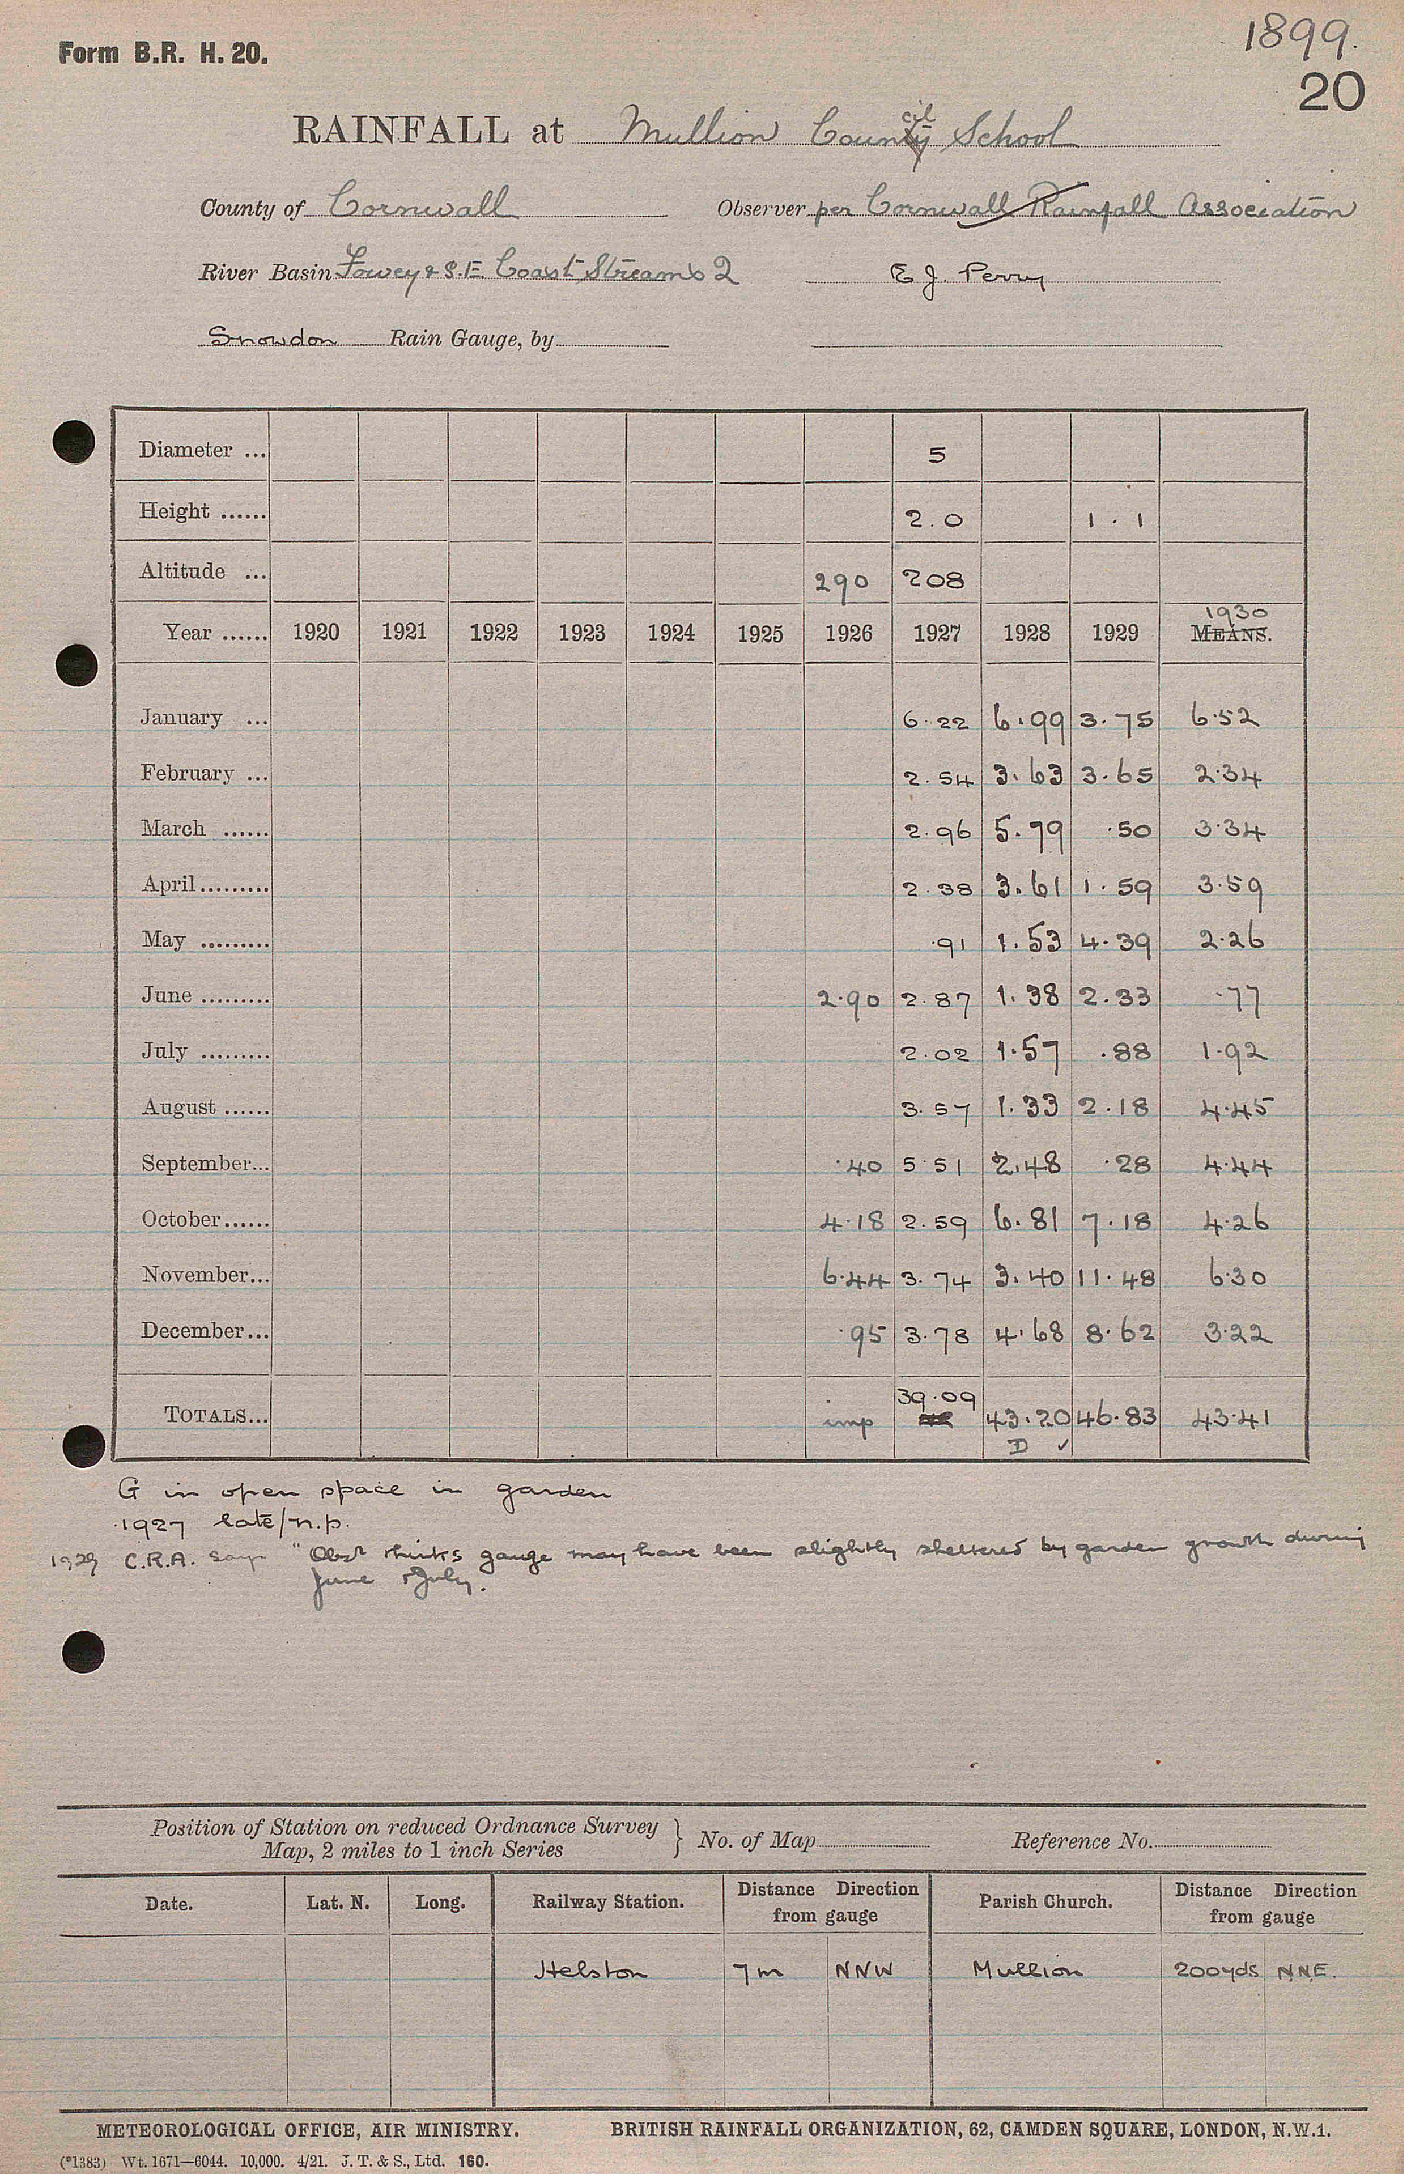 1899.
Form B.R. H. 20.
20
RAINFALL at Mullion County cil School
County of Cornwall Observer per Cornwall Rainfall Association
River Basin Fowey & S.E Coast Streams 2 E J. Perry
Snowdon Rain Gauge, by
Diameter ... 5
Height ...... 2.0 1.1
Altitude ... 290 208
1930
Year ...... 1920 1921 1922 1923 1924 1925 1926 1927 1928 1929 MEANS.
January ... 6.22 6.99 3.75 6.52
February ... 2.54 3.63 3.65 2.34
March ...... 2.96 5.79 .50 3.34
April ......... 2.38 3.61 1.59 3.59
May ......... .91 1.53 4.39 2.26
June ......... 2.90 2.87 1.38 2.33 .77
July ......... 2.02 1.57 .88 1.92
August ...... 3.57 1.33 2.18 4.45
September... .40 5.51 2.48 .28 4.44
October...... 4.18 2.59 6.81 7.18 4.26
November... 6.44 3.74 3.40 11.48 6.30
December... .95 3.78 4.68 8.62 3.22
39.09
TOTALS... imp 43.20 46.83 43.41
D ✓
G in open space in garden
1927 late/n.p.
1929 C.R.A. says "Obsr thinks gauge may have been slightly sheltered by garden growth during
June & July.
Position of Station on reduced Ordnance Survey
Map, 2 miles to 1 inch Series } No. of Map Reference No.
Date. Lat. N. Long. Railway Station. Distance Direction from gauge Parish Church. Distance Direction from gauge
Helston 7m NNW Mullion 200yds NNE.
METEOROLOGICAL OFFICE, AIR MINISTRY. BRITISH RAINFALL ORGANIZATION, 62, CAMDEN SQUARE, LONDON, N.W.1.
(*1383) Wt. 1671—6044. 10,000. 4/21. J. T. & S., Ltd. 160.